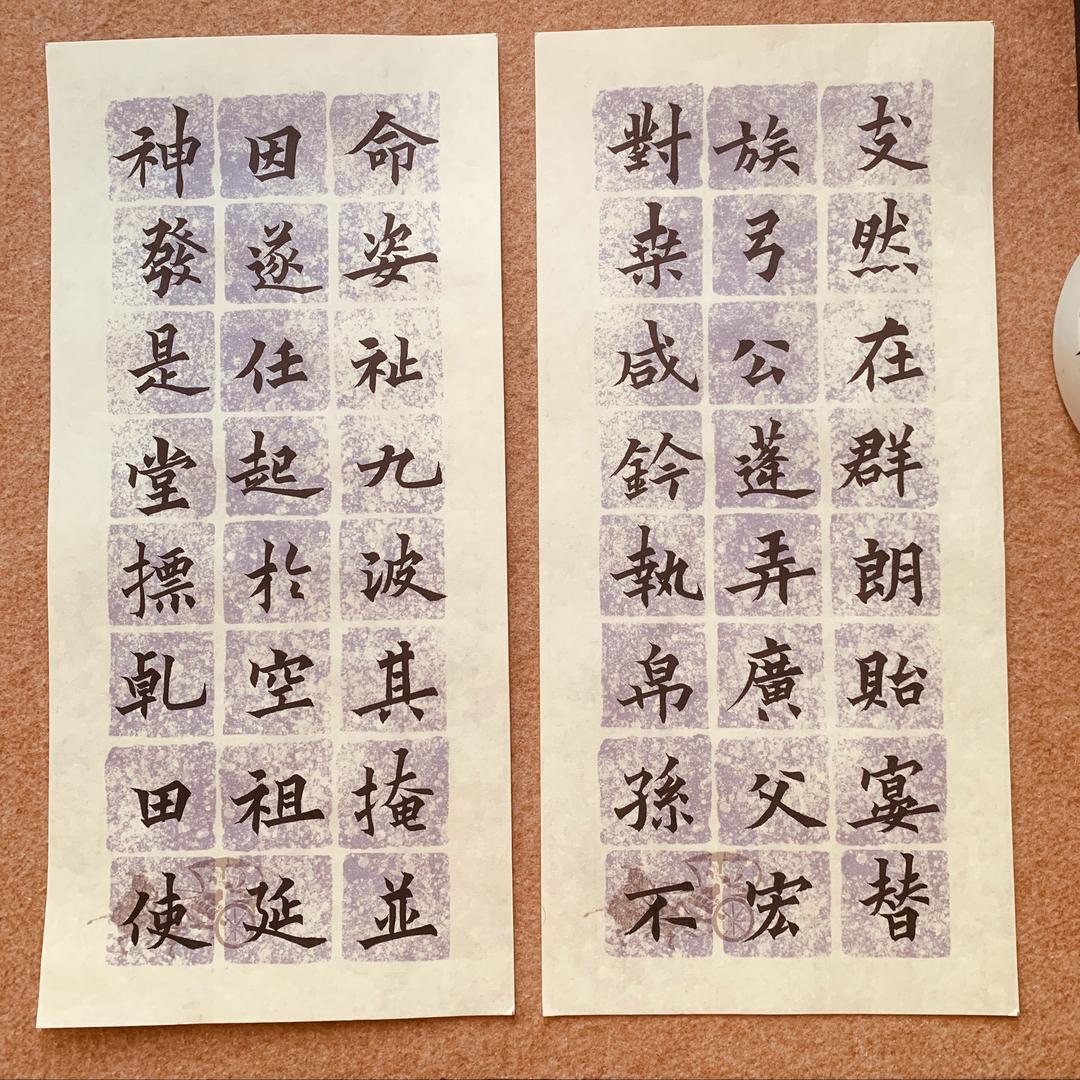 支然在群朗貽宴替
族弓公蓬弄廣父宏
對桒咸鈐執帛孫不
命姿祉九波其掩並
因遂任起於空祖延
神發是堂摽乹田使